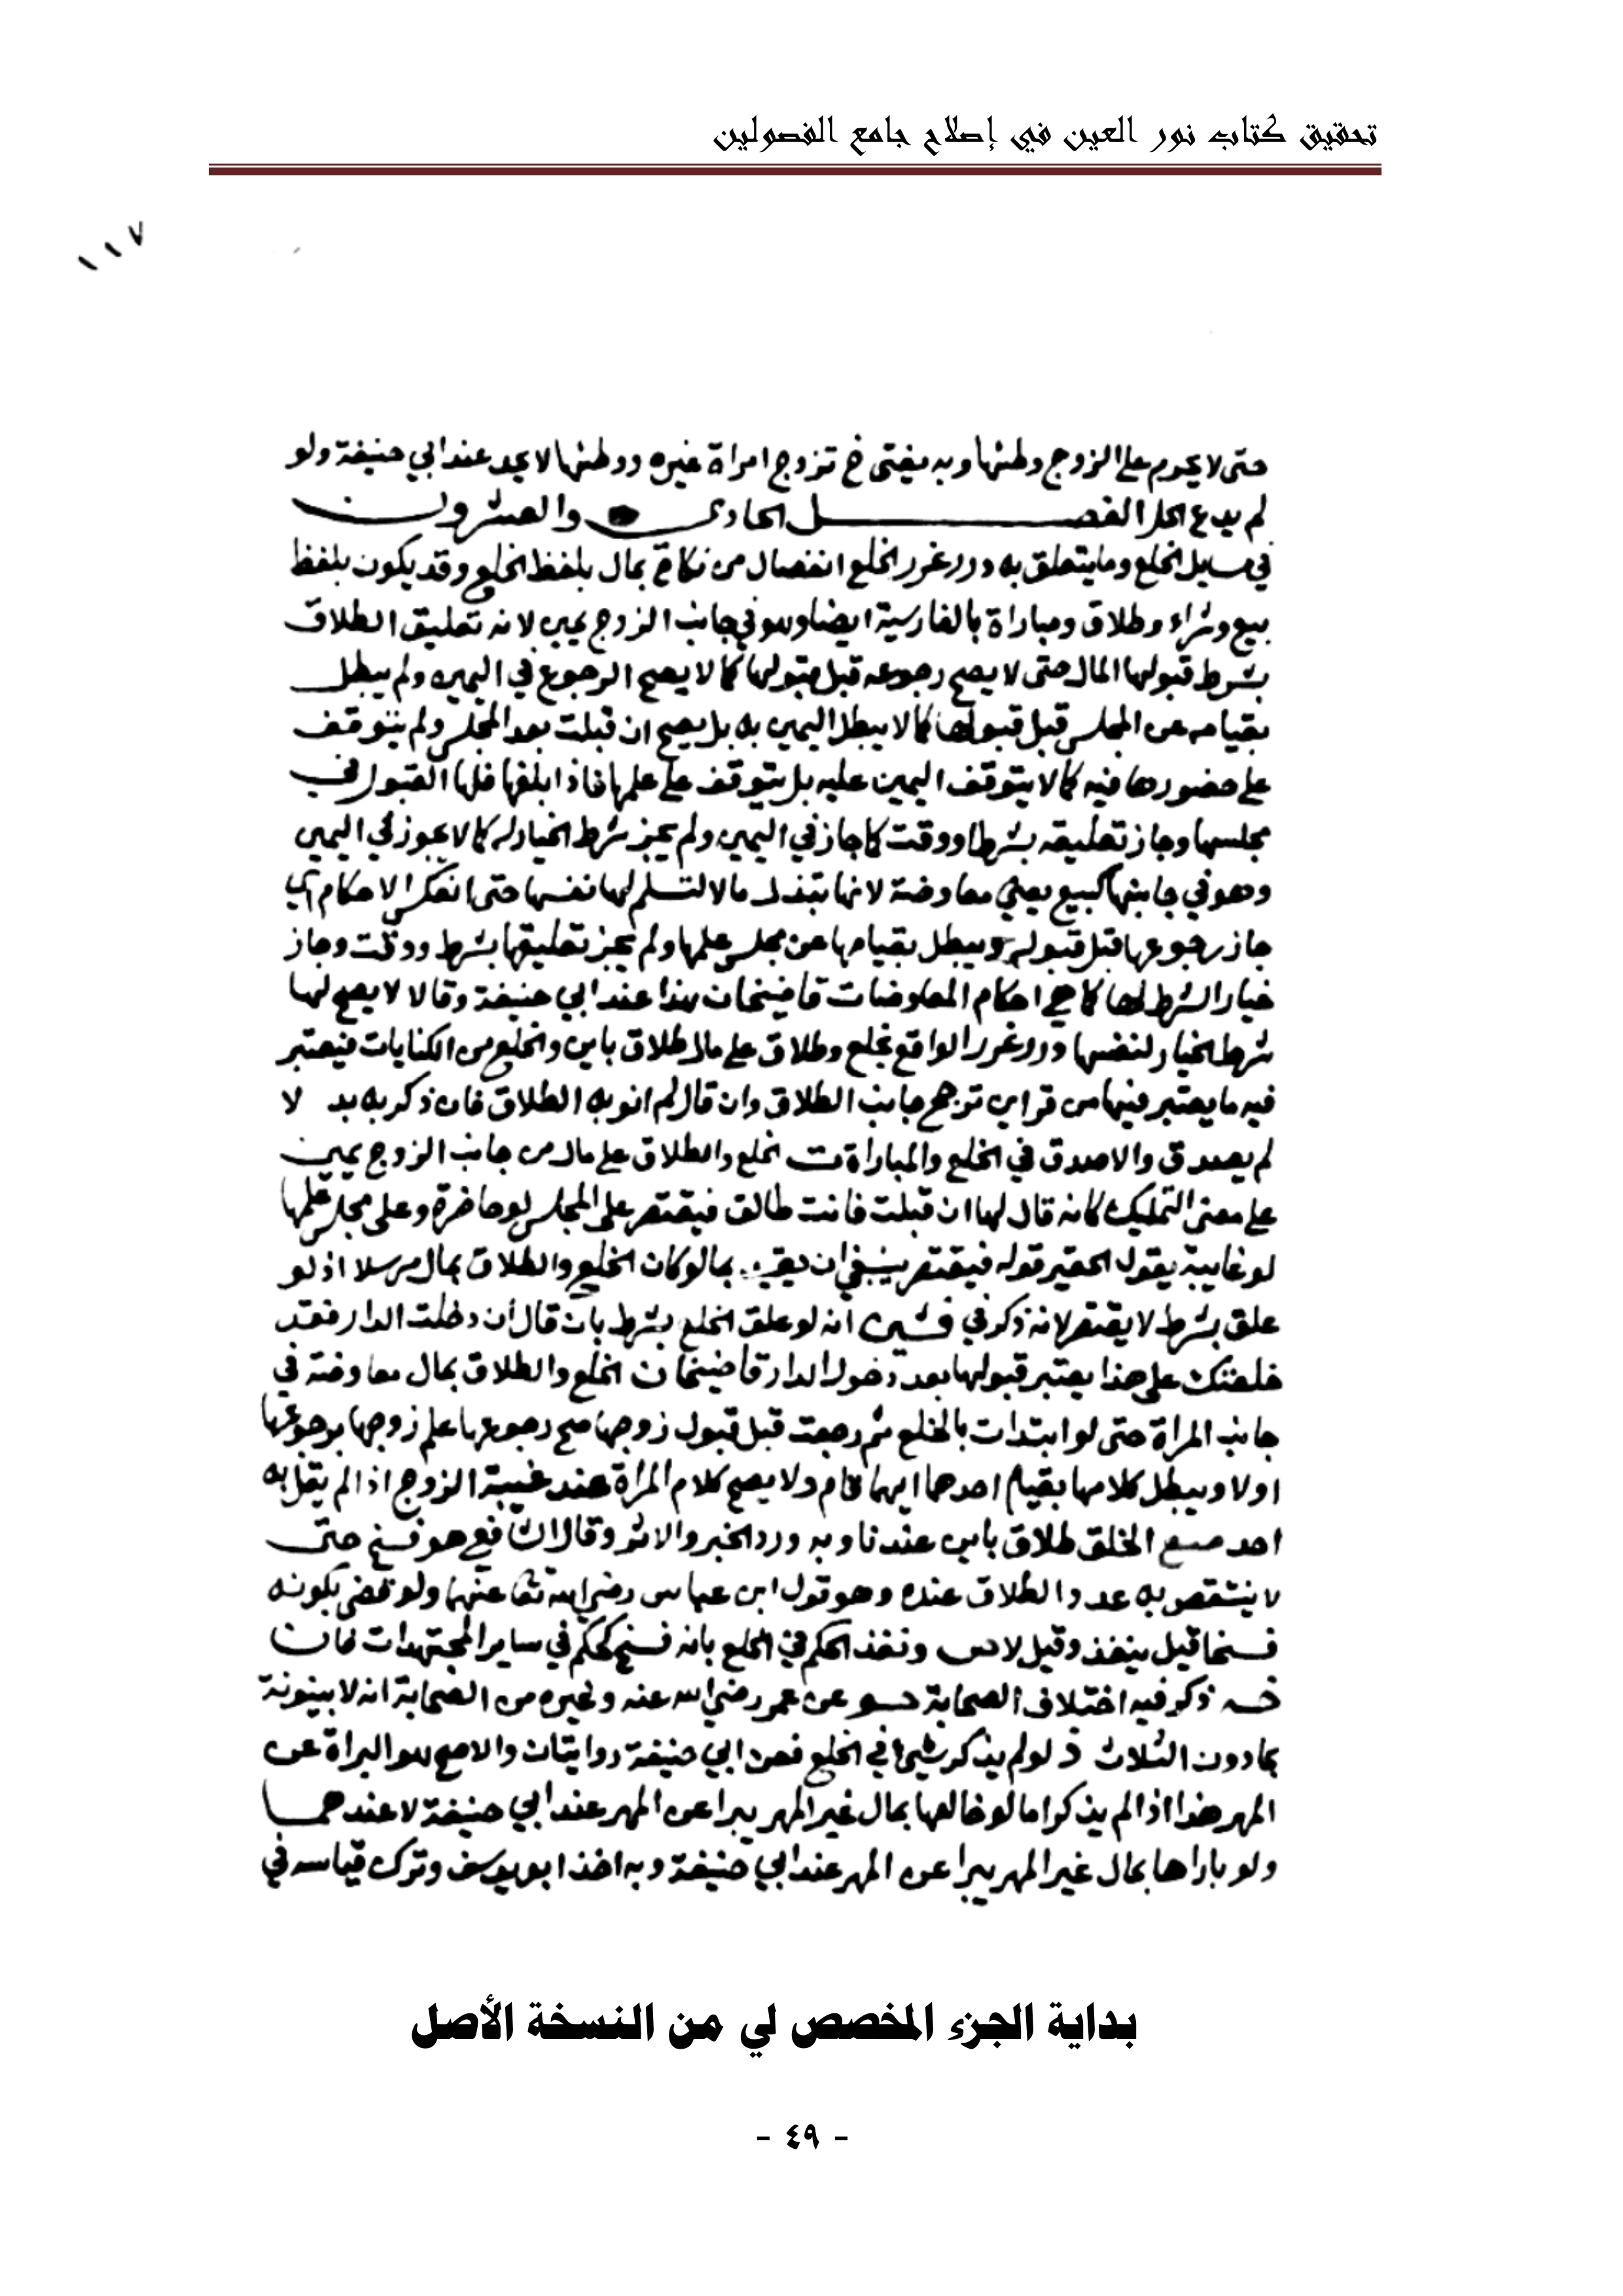 تحقيق كتاب نور العين في إصلاح جامع الفصولين
١١٧
حتى لا يحرم على الزوج وطئها وبه يفتى خ تزوج امراة غيره ووطئها لا يحد عند ابي حنيفة ولو
لم يدع الحل الفصل الحادي والعشرون
في مسايل الخلع وما يتعلق به درر غرر الخلع انفصال من نكاح بمال بلفظ الخلع وقد يكون بلفظ
بيع وشراء وطلاق ومباراة بالفارسية ايضا وهو في جانب الزوج يمين لانه تعليق الطلاق
بشرط قبولها المال حتى لا يصح رجوعه قبل قبولها كما لا يصح الرجوع في اليمين ولم يبطل
بقيامه عن المجلس قبل قبولها كما لا يبطل اليمين به بل يصح ان قبلت بعد المجلس ولم يتوقف
على حضورها فيه كما لا يتوقف اليمين عليه بل يتوقف على علمها فاذا بلغها فلها القبول في
مجلسها وجاز تعليقه بشرط او وقت كما جاز في اليمين ولم يجز شرط الخيار له كما لا يجوز في اليمين
وهو في جانبها كبيع يعني معاوضة لانها تبذل مالا لتسلم لها نفسها حتى انعكس الاحكام اي
جاز رجوعها قبل قبوله ويبطل بقيامها عن مجلس علمها ولم يجز تعليقها بشرط ووقت وجاز
خيار الشرط لها كما هي احكام المعاوضات قاضيخان هذا عند ابي حنيفة وقالا لا يصح لها
شرط الخيار لنفسها درر غرر الواقع بخلع وطلاق على مال طلاق باين والخلع من الكنايات فيعتبر
فيه ما يعتبر فيها من قراين ترجح جانب الطلاق وان قال لم انو به الطلاق فان ذكر به بد لا
لم يصدق والا صدق في الخلع والمباراة ت الخلع والطلاق على مال من جانب الزوج يمين
على معنى التمليك كانه قال لها ان قبلت فانت طالق فيقتصر على المجلس لو حاضرة وعلى مجلس علمها
لو غايبة يقول الحقير قوله فيقتصر ينبغي ان يقيد بما لو كان الخلع والطلاق بمال مرسلا اذ لو
علق بشرط لا يقتصر لانه ذكر في فشين انه لو علق الخلع بشرط بان قال ان دخلت الدار فقد
خلعتك على هذا يعتبر قبولها بعد دخول الدار قاضيخان الخلع والطلاق بمال معاوضة في
جانب المراة حتى لو ابتدات بالخلع ثم رجعت قبل قبول زوجها صح رجوعها علم زوجها برجوعها
اولا ويبطل كلامها بقيام احدهما ايهما قام ولا يصح كلام المراة عند غيبة الزوج اذا لم يقبل به
احد الخلق طلاق باين عندنا وبه ورد الخبر والاثر وقال الشافعي هو فسخ حتى
لا ينتقص به عدد الطلاق عنده وهو قول ابن عباس رضي الله تعا عنهما ولو قضى بكونه
فسخا قيل ينفذ وقيل لا ونفذ الحكم في الخلع بانه فسخ كحكم في ساير المجتهدات فان
ذكر فيه اختلاف الصحابة عن عمر رضي الله عنه وغيره من الصحابة انه لا بينونة
بما دون الثلاث ذ لو لم يذكر شيئ في الخلع فعن ابي حنيفة روايتان والاصح هو البراة عن
المهر هذا اذا لم يذكر اما لو خالعها بمال غير المهر يبرا عن المهر عند ابي حنيفة لا عندهما
ولو باراها بمال غير المهر يبرا عن المهر عند ابي حنيفة وبه اخذ ابو يوسف وترك قياسه في
بداية الجزء المخصص لي من النسخة الأصل
- ٤٩ -